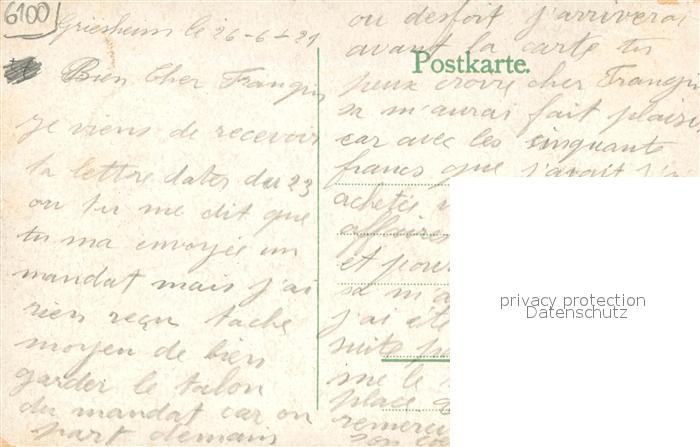 6100
Griesheim le 26-6-21
Bien Cher Frangin
je viens de recevoir
ta lettre datés du 23
ou tu me dit que
tu ma envoyée un
mandat mais j'ai
rien reçu tache
moyen de bien
garder le talon
du mandat car on
part demain
ou desfoit j'arriverai
avant la carte tu
Postkarte.
peux croire cher Frangin
sa m'aurai fait plaisir
car avec les cinquante
francs que j'avait j'ai
achetée
affaires
et pour
sa m'a
j'ai été
suits
me le
place
remerci
privacy protection
Datenschutz